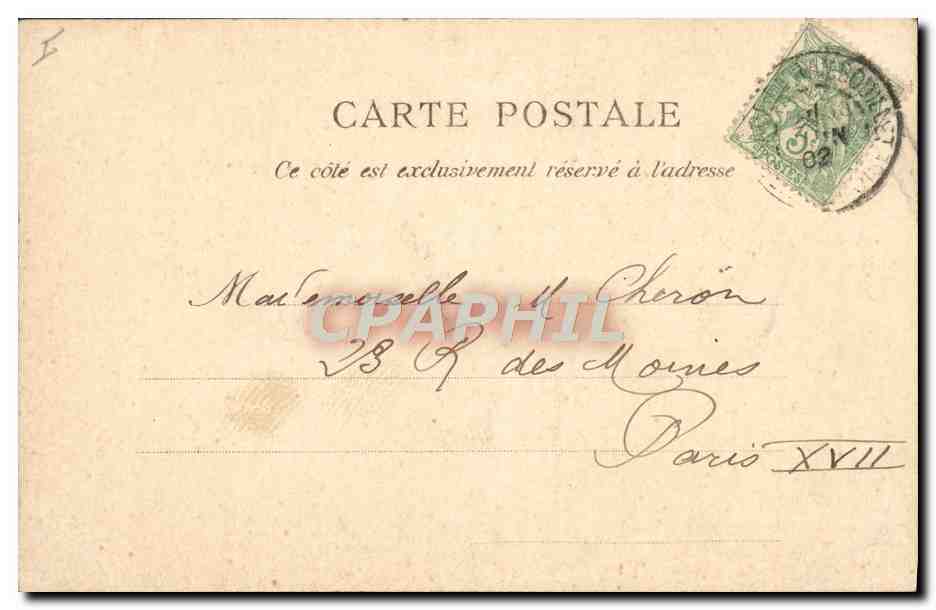 CARTE POSTALE
Ce côté est exclusivement réservé à l'adresse
5
POSTES
JUIN
02
Mademoiselle M Cheron
CPAPHIL
23 R des Moines
Paris XVII